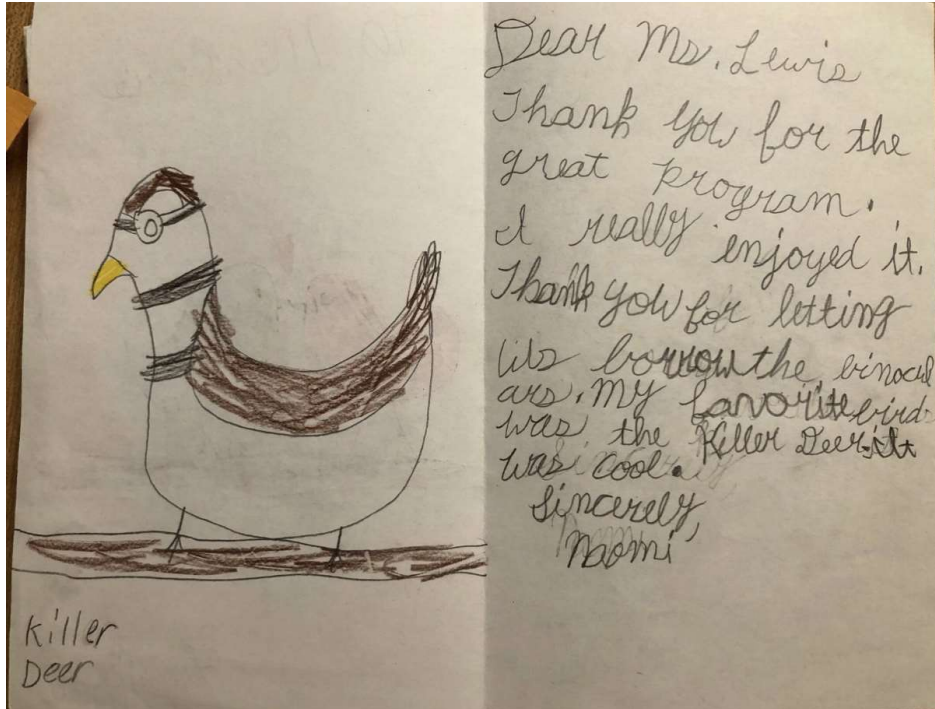 Dear Ms. Lewis
Thank you for the
great program.
I really enjoyed it.
Thank you for letting
us borrow the binocul
ars. My favorite bird
was the Killer Deer. It
was cool.
Sincerely,
Naomi
Killer
Deer